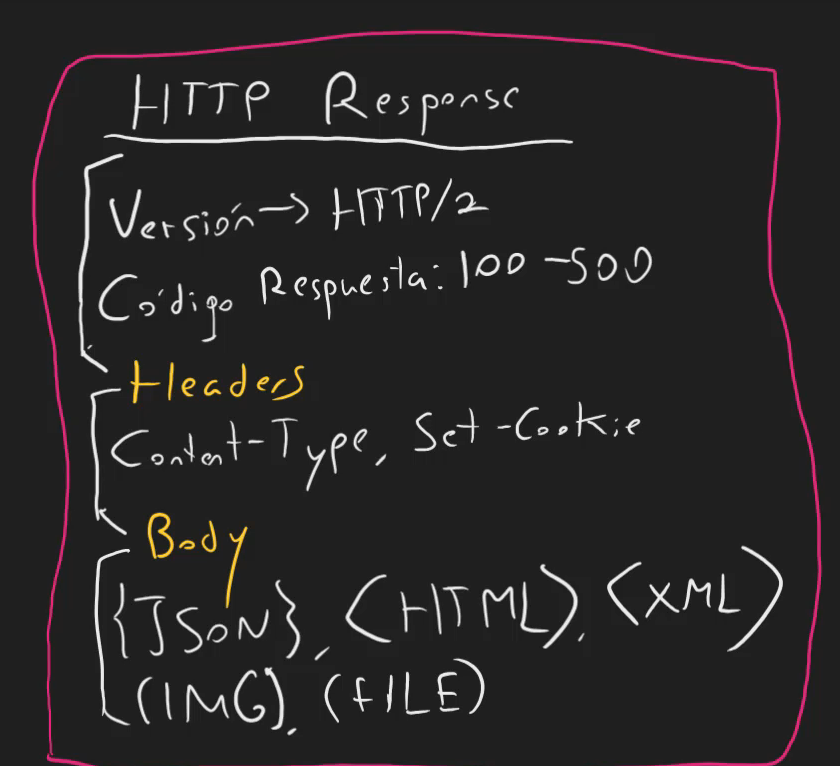 HTTP Response
Versión → HTTP/2
Código Respuesta: 100 - 500
Headers
Content-Type, Set-Cookie
Body
{JSON}, <HTML>, <XML>
(IMG), (FILE)